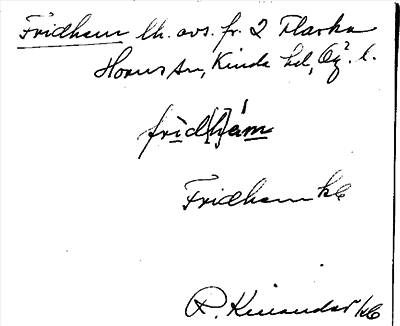 Fridhem lh. avs. fr. 2 Flarka
Horns sn, Kinda hd, Ög. l.
frìd[h]ám
Fridhem kb
R. Kinander kb